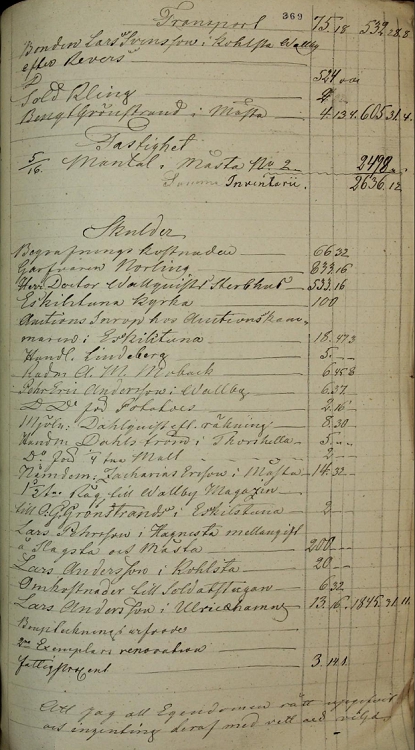 Transport 369 75.18 532.28.8
Bonden Lars Svensson i Kohlsta Wallby
efter Revers 524
Sold Kling 2
Bengt Grönstrand i Måsta 4.13.4. 605.31.4.
Fastighet
5/16 Mantal i Måsta No 2 2498
Summa Inventarii. 2636.12
Skulder
Begrafnings kostnader 66 32
Garfvaren Norling 833.16
Herr Doctor Wallquists Sterbhus 533.16
Eskilstuna Kyrka 100
Auctions Inrop hos Auctionskam-
maren i Eskilstuna
Handl. Lindeberg 5.
A. M. Moback
Pehr Eric Andersson i Wallby 6.37
Do Do för Potatoes 2.16
Mjöln: Dahlquist efl. räkning 8.30
Handm Dahlström i Thorshella 5
Do för Malt 2
Nämdem: Zacharias Ersson i Måsta 14.32
Råg till Wallby Magazin
till Grönstrands i Eskilstuna 2
Lars Pehrsson i Hagnesta mellangift
å Slagsta och Måsta 200
Lars Andersson i Kohlsta 20
Omkostnader till Soldatstugan 6.32
Lars Andersson i Ulricehamn 13.16. 1845.31.11
Bouptecknings arfvode
Exemplars renovation
fattigprocent 3.14.1
Att jag all Egendomen rätt uppgifvit
och ingenting deraf med vett och vilja